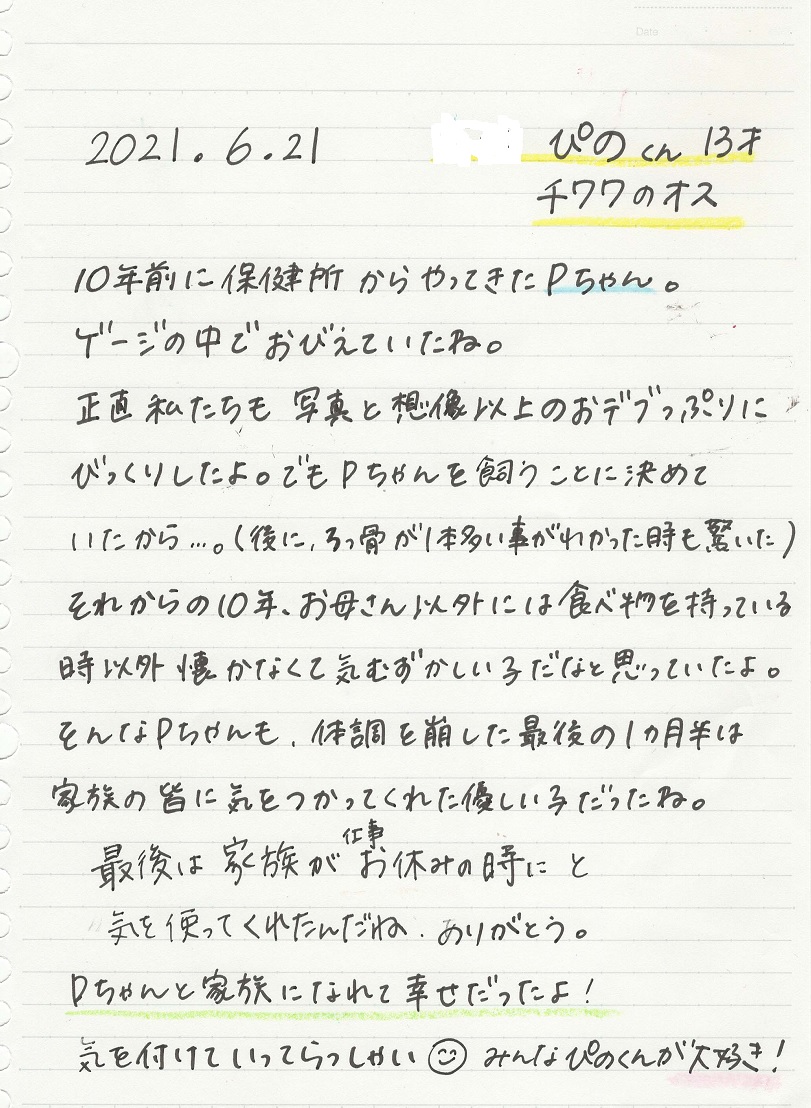 Date
2021.6.21 ぴのくん 13才
チワワのオス
10年前に保健所からやってきたPちゃん。
ゲージの中でおびえていたね。
正直私たちも写真と想像以上のおデブっぷりに
びっくりしたよ。でもPちゃんを飼うことに決めて
いたから…。(後に、ろっ骨が1本多い事がわかった時も驚いた)
それからの10年、お母さん以外には食べ物を持っている
時以外懐かなくて気むずかしい子だなと思っていたよ。
そんなPちゃんも、体調を崩した最後の1ヵ月半は
家族の皆に気をつかってくれた優しい子だったね。
最後は家族が仕事お休みの時にと
気を使ってくれたんだね.ありがとう。
Pちゃんと家族になれて幸せだったよ!
気を付けていってらっしゃい☺みんなぴのくんが大好き!